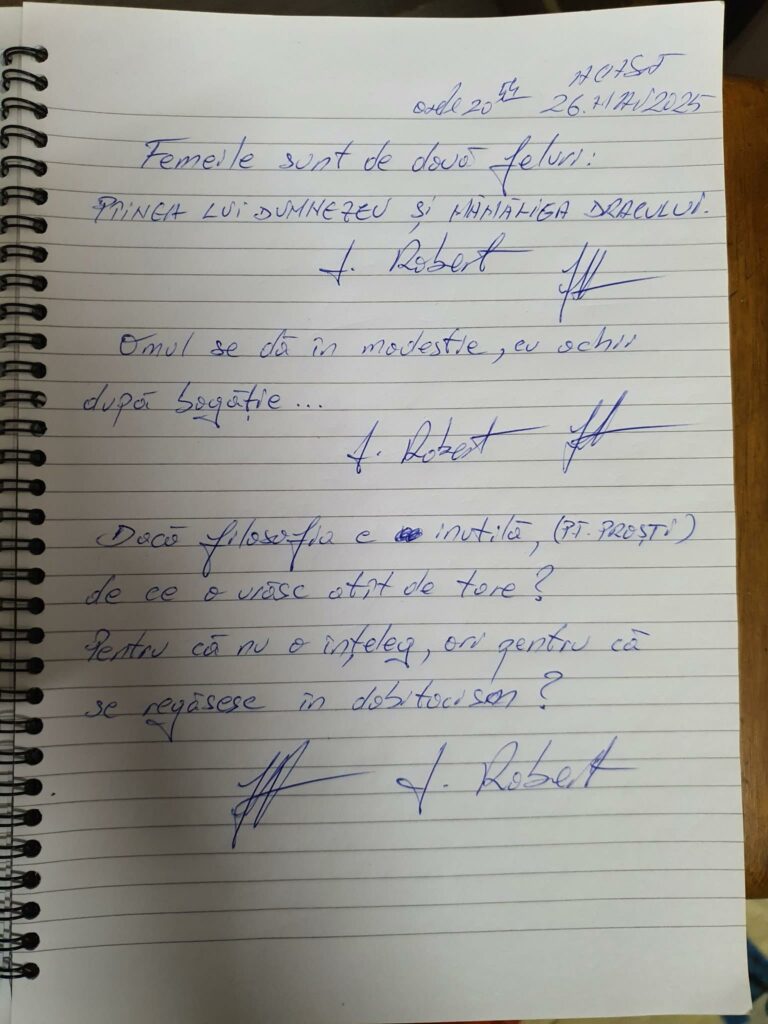 ACASĂ
orele 20 26.MAI2025
Femeile sunt de două feluri:
PÎINEA LUI DUMNEZEU ȘI MĂMĂLIGA DRACULUI.
J. Robert
Omul se dă în modestie, cu ochii
după bogăție...
J. Robert
Dacă filosofia e inutilă, (PT. PROȘTI)
de ce o urăsc atît de tare?
Pentru că nu o înțeleg, ori pentru că
se regăsesc în dobitocism?
J. Robert